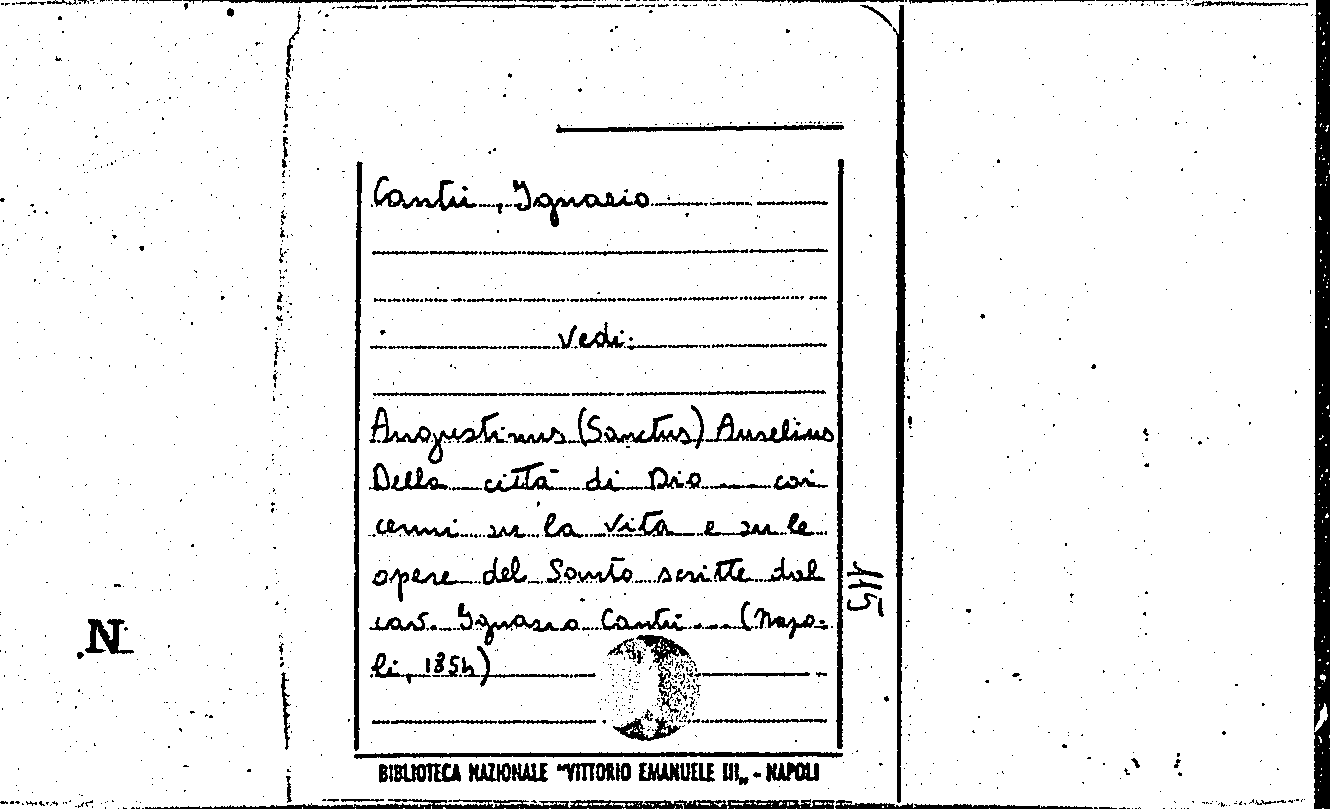 Cantù, Ignazio
Vedi:
Augustinus (Sanctus) Aurelius
Della città di Dio ... coi
cenni su la vita e su le
opere del Santo scritte dal
cav. Ignazio Cantù ... (Napo-
li, 1854)
115
N
BIBLIOTECA NAZIONALE "VITTORIO EMANUELE III„ - NAPOLI